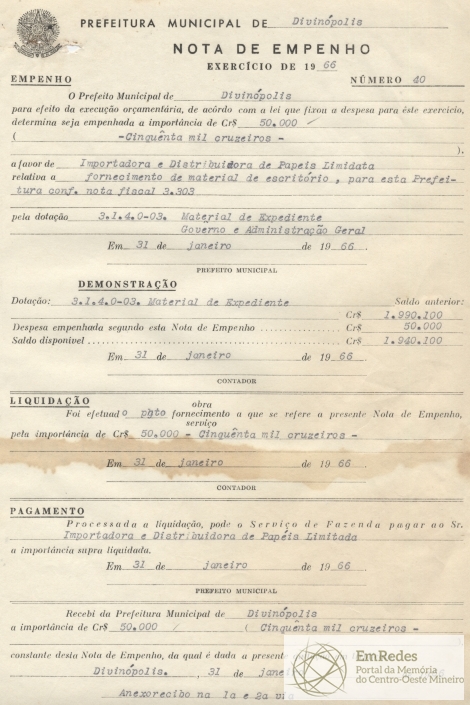 PREFEITURA MUNICIPAL DE Divinópolis
NOTA DE EMPENHO
EXERCÍCIO DE 19 66
EMPENHO NÚMERO 40
O Prefeito Municipal de Divinópolis
para efeito da execução orçamentária, de acórdo com a lei que fixou a despesa para êste exercício,
determina seja empenhada a importância de Cr$ 50.000
( -Cinquênta mil cruzeiros -
).
a favor de Importadora e Distribuidora de Papeis Limidata
relativa a fornecimento de material de escritório , para esta Prefei-
tura conf. nota fiscal 3.303
pela dotação 3.1.4.0-03. Material de Expediente
Governo e Administração Geral
Em 31 de janeiro de 19 66
PREFEITO MUNICIPAL
DEMONSTRAÇÃO
Dotação: 3.1.4.0-03. Material de Expediente Saldo anterior:
Cr$ 1.990.100
Despesa empenhada segundo esta Nota de Empenho Cr$ 50.000
Saldo disponível Cr$ 1.940.100
Em 31 de janeiro de 19 66
CONTADOR
LIQUIDAÇÃO
obra
Foi efetuado o fornecimento a que se refere a presente Nota de Empenho,
serviço
pela importância de Cr$ 50.000 - Cinquênta mil cruzeiros -
Em 31 de janeiro de 19 66
CONTADOR
PAGAMENTO
Processada a liquidação, pode o Serviço de Fazenda pagar ao Sr.
Importadora e Distribuidora de Papéis Limitada
a importância supra liquidada.
Em 31 de janeiro de 19 66
PREFEITO MUNICIPAL
Recebi da Prefeitura Municipal de Divinópolis
a importância de Cr$ 50.000 ( Cinquênta mil cruzeiros -
constante desta Nota de Empenho, da qual é dada a presente
Divinópolis. 31 de
Anexorecibo na 1a e 2a
EmRedes
Portal da Memória
do Centro-Oeste Mineiro